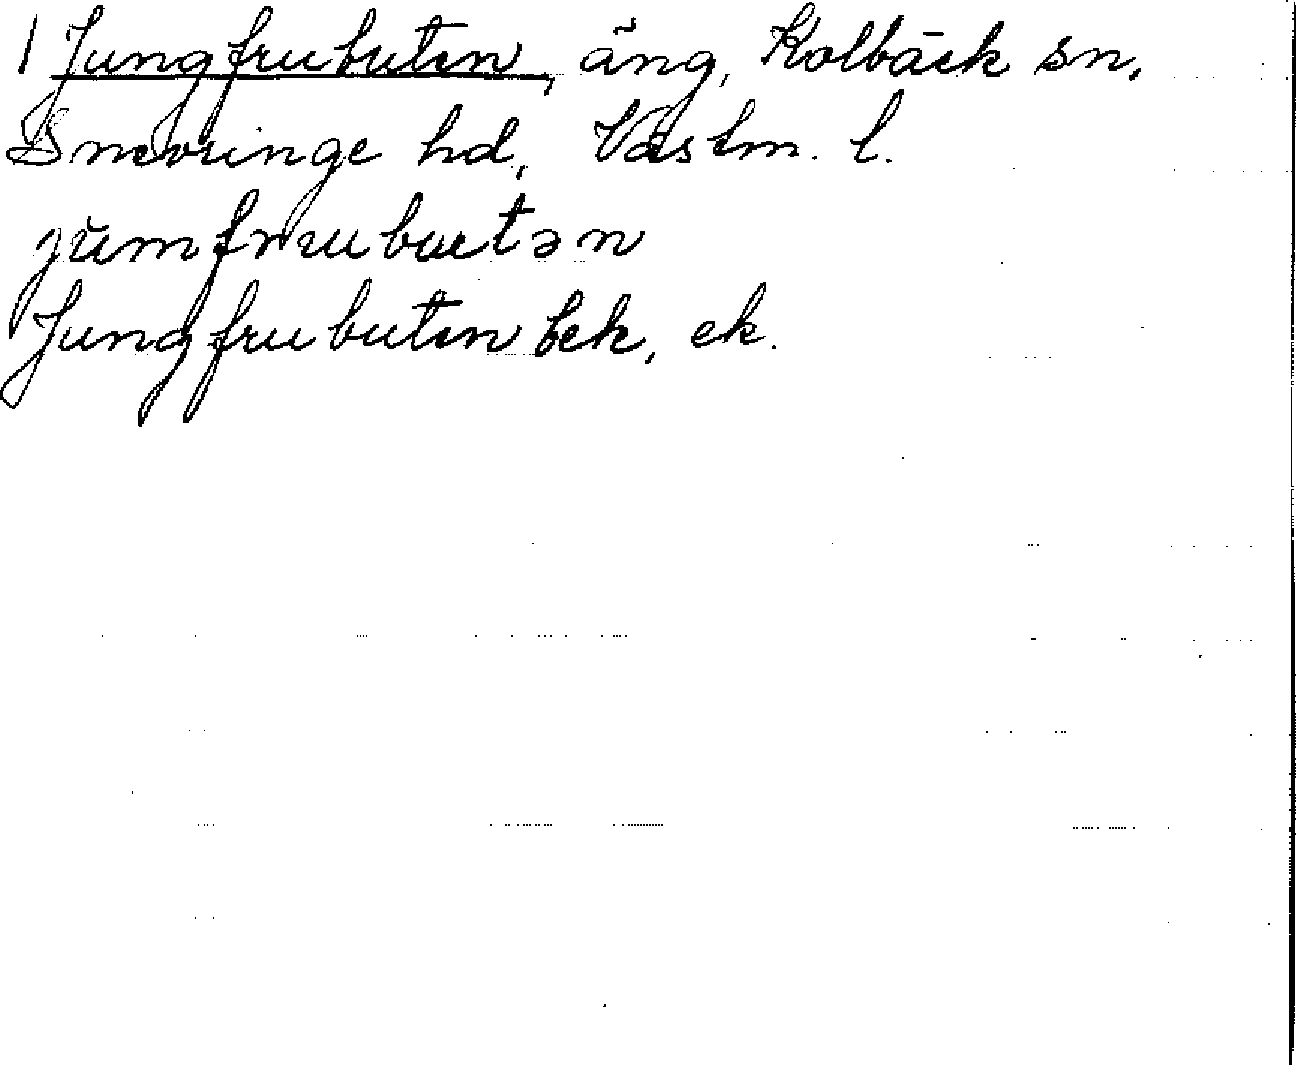 1 Jungfrubuten, äng, Kolbäck sn,
Snevringe hd, Västm. l.
jumfrubutən
Jungfrubuten bek, ek.